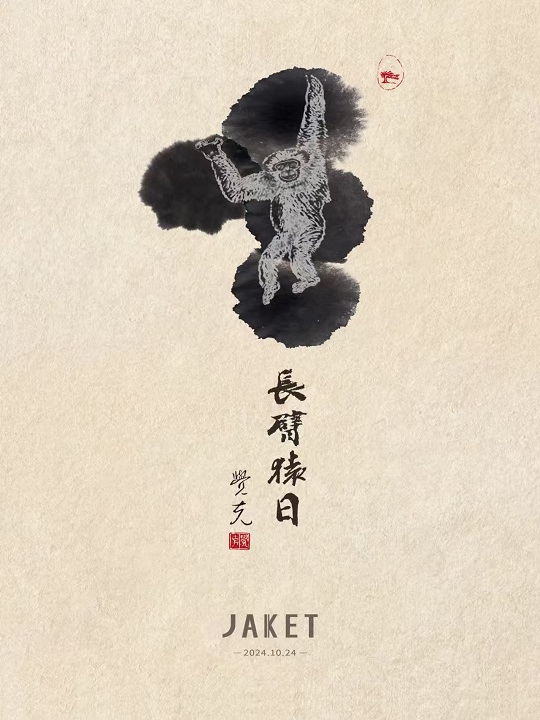 長臂猿日
覺克
JAKET
2024.10.24